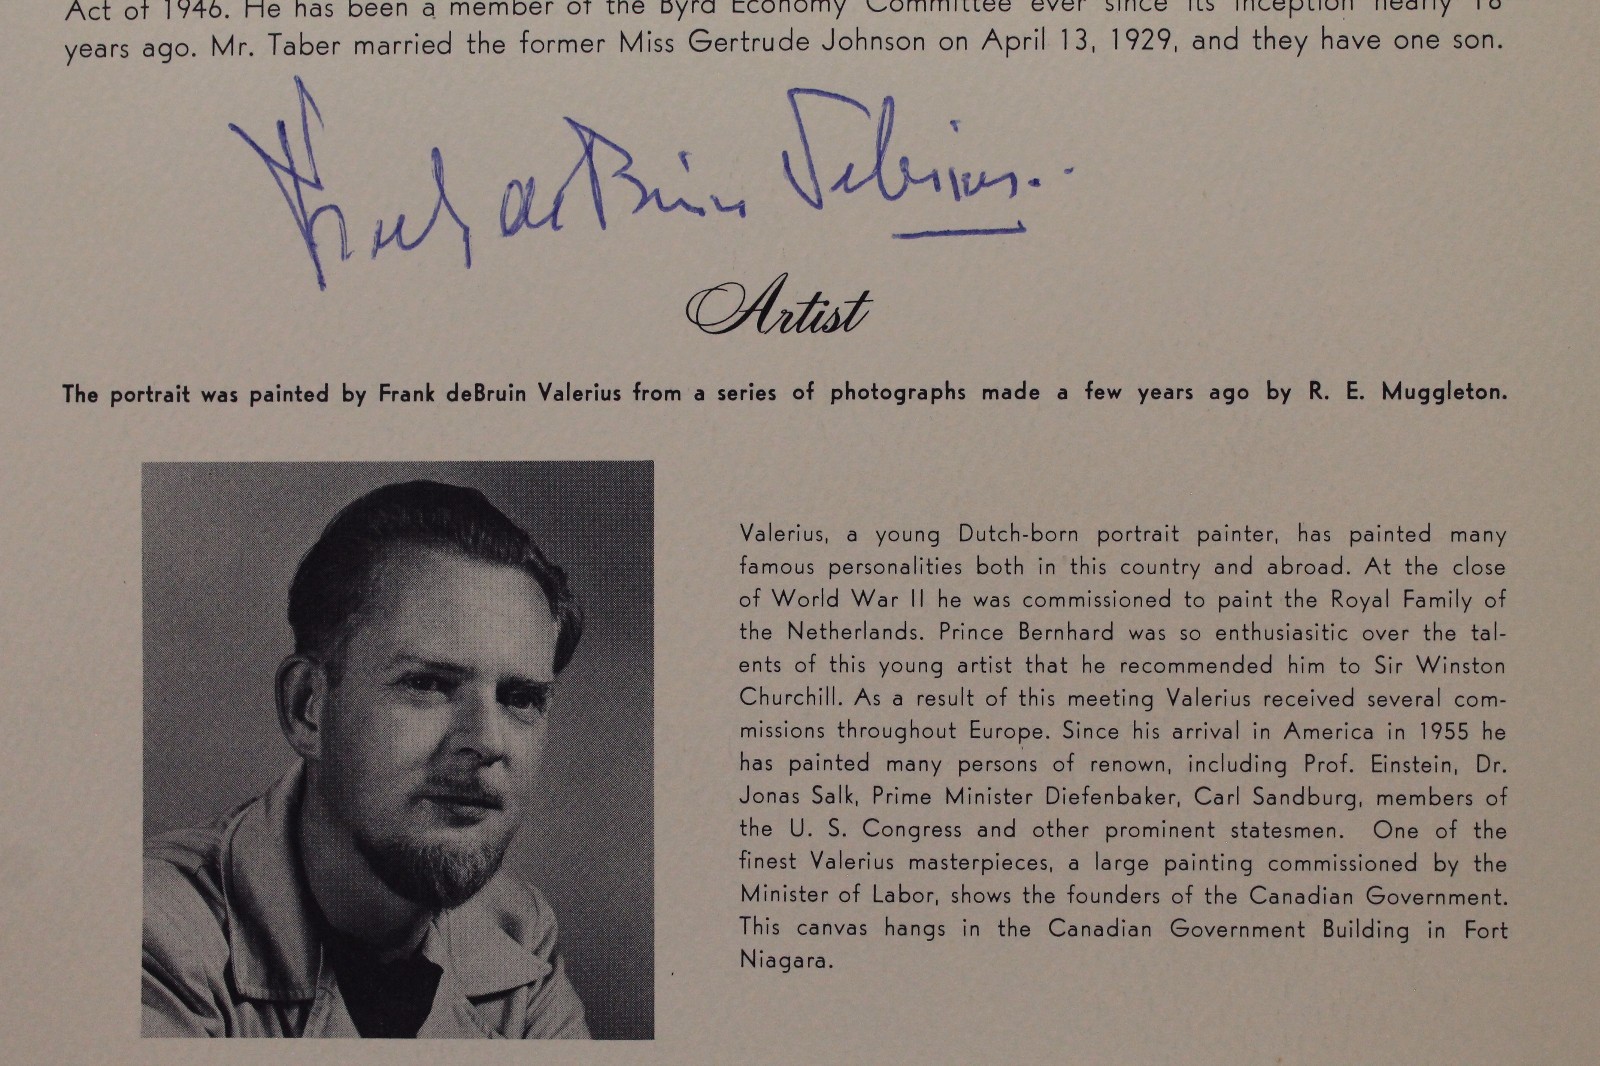 Act of 1946. He has been a member of the Byrd Economy Committee ever since its inception nearly 18
years ago. Mr. Taber married the former Miss Gertrude Johnson on April 13, 1929, and they have one son.
Frank deBruin Valerius..
Artist
The portrait was painted by Frank deBruin Valerius from a series of photographs made a few years ago by R. E. Muggleton.
Valerius, a young Dutch-born portrait painter, has painted many
famous personalities both in this country and abroad. At the close
of World War II he was commissioned to paint the Royal Family of
the Netherlands. Prince Bernhard was so enthusiasitic over the tal-
ents of this young artist that he recommended him to Sir Winston
Churchill. As a result of this meeting Valerius received several com-
missions throughout Europe. Since his arrival in America in 1955 he
has painted many persons of renown, including Prof. Einstein, Dr.
Jonas Salk, Prime Minister Diefenbaker, Carl Sandburg, members of
the U. S. Congress and other prominent statesmen. One of the
finest Valerius masterpieces, a large painting commissioned by the
Minister of Labor, shows the founders of the Canadian Government.
This canvas hangs in the Canadian Government Building in Fort
Niagara.